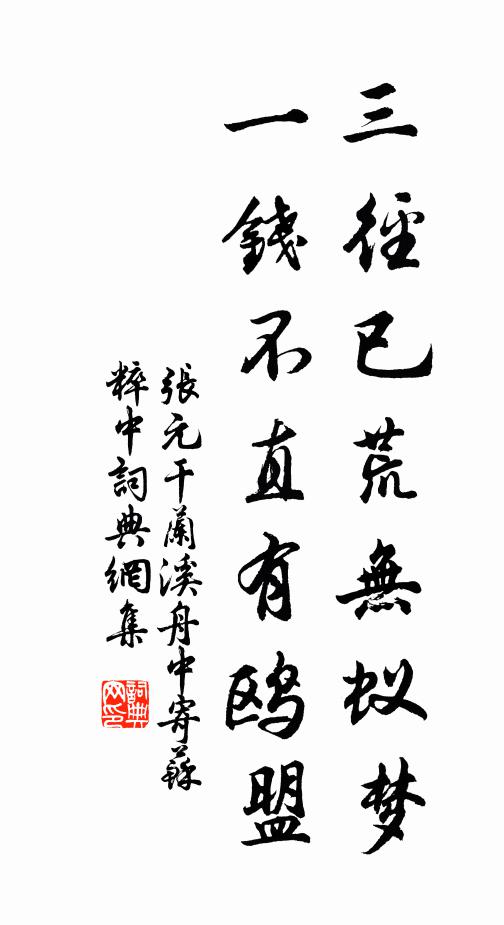 三徑已荒無蚁梦
一錢不直有鸥盟
張元干蘭溪舟中寄蘇
粹中詞典網集
詞典网印